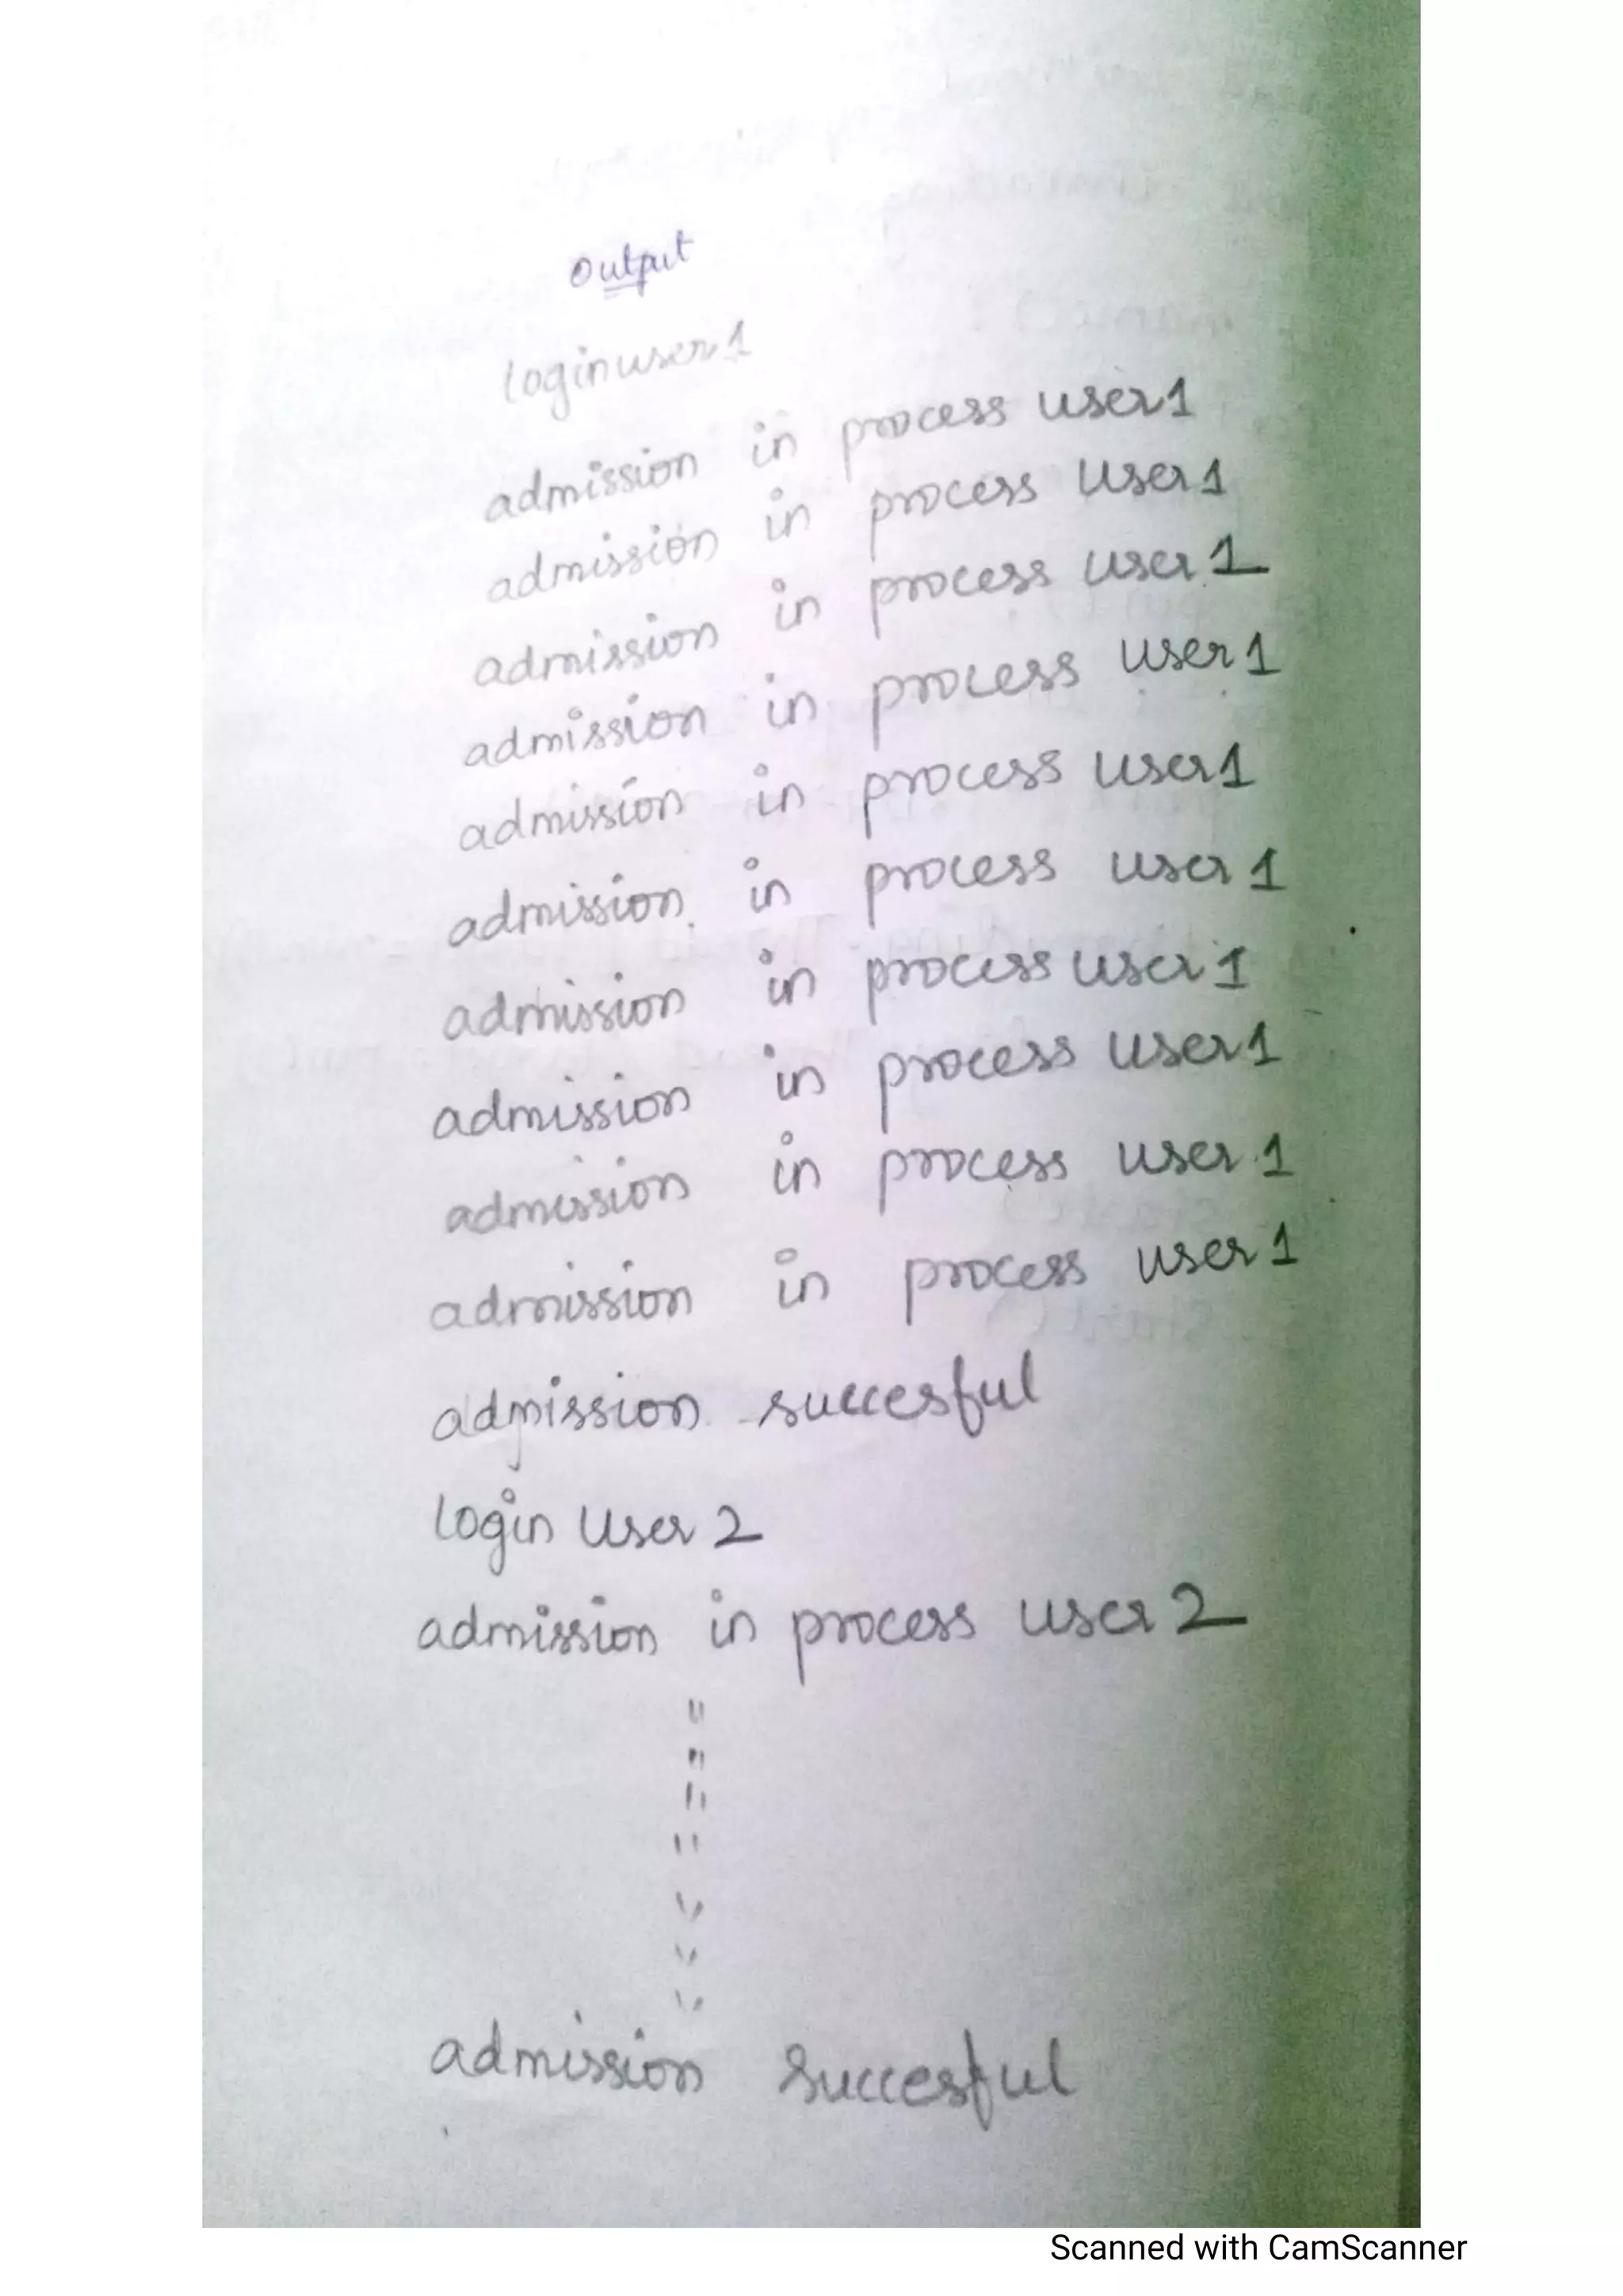 Output
loginuser1
admission in process user1
admission in process user1
admission in process user 1
admission in process user 1
admission in process user1
admission in process user 1
admission in process user 1
admission in process user1
admission in process user 1
admission in process user 1
admission succesful
login user 2
admission in process user 2
"
"
"
"
"
"
"
admission succesful
Scanned with CamScanner